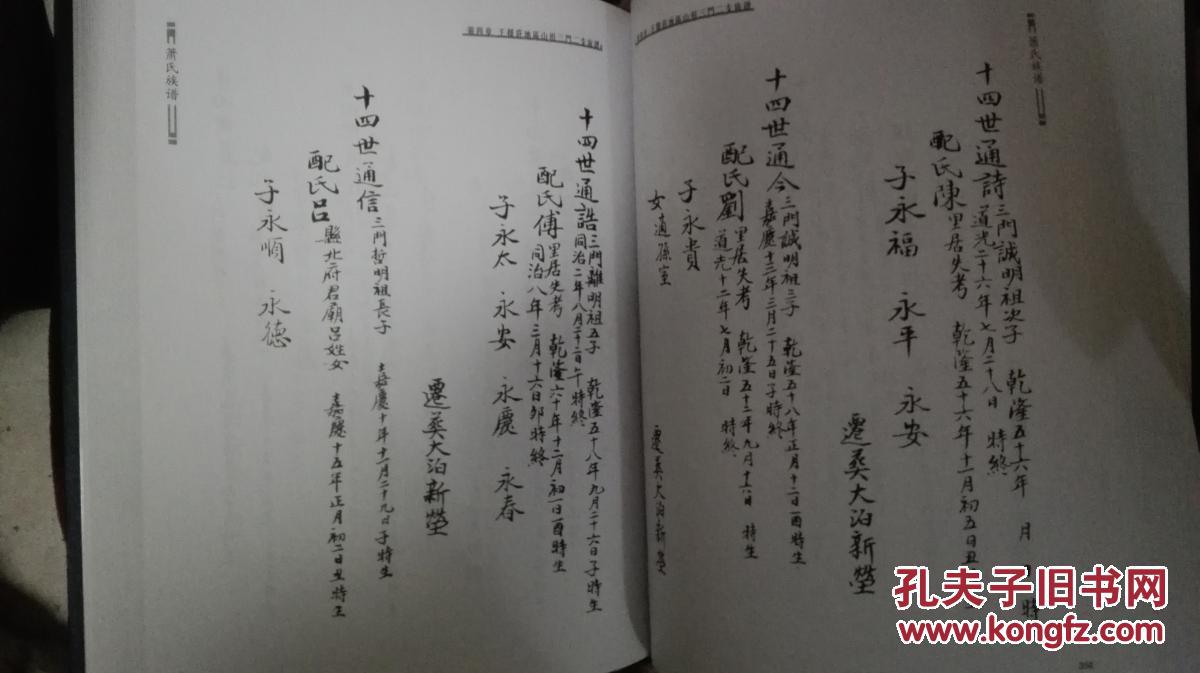 萧氏族谱
十四世通詩 三門誠明祖次子 乾隆五十六年 月 日 時
道光二十六年七月二十八日 時終
配氏陳 里居失考 乾隆五十六年十一月初五日丑
子永福 永平 永安
遷葵大泊新塋
十四世通今 三門誠明祖三子 乾隆五十八年正月十二日酉時生
嘉慶十三年三月二十五日子時終
配氏劉 里居失考 乾隆五十三年九月十六日 時生
道光十二年七月初二日 時終
子永貴
女適孫室
遷葵大泊新塋
356
第四章 王樓莊地區山相三門二支族譜
十四世通誥 三門離明祖五子 乾隆五十八年九月二十六日子時生
同治二年八月二十二日午時終
配氏傅 里居失考 乾隆六十年十二月初一日酉時生
同治八年三月十六日卯時終
子永太 永安 永慶 永春
遷葵大泊新塋
十四世通信 三門哲明祖長子 嘉慶十年十一月二十九日子時生
配氏呂 縣北府君廟呂姓女 嘉慶十五年正月初二日丑時生
子永順 永德
萧氏族谱
孔夫子旧书网
www.kongfz.com